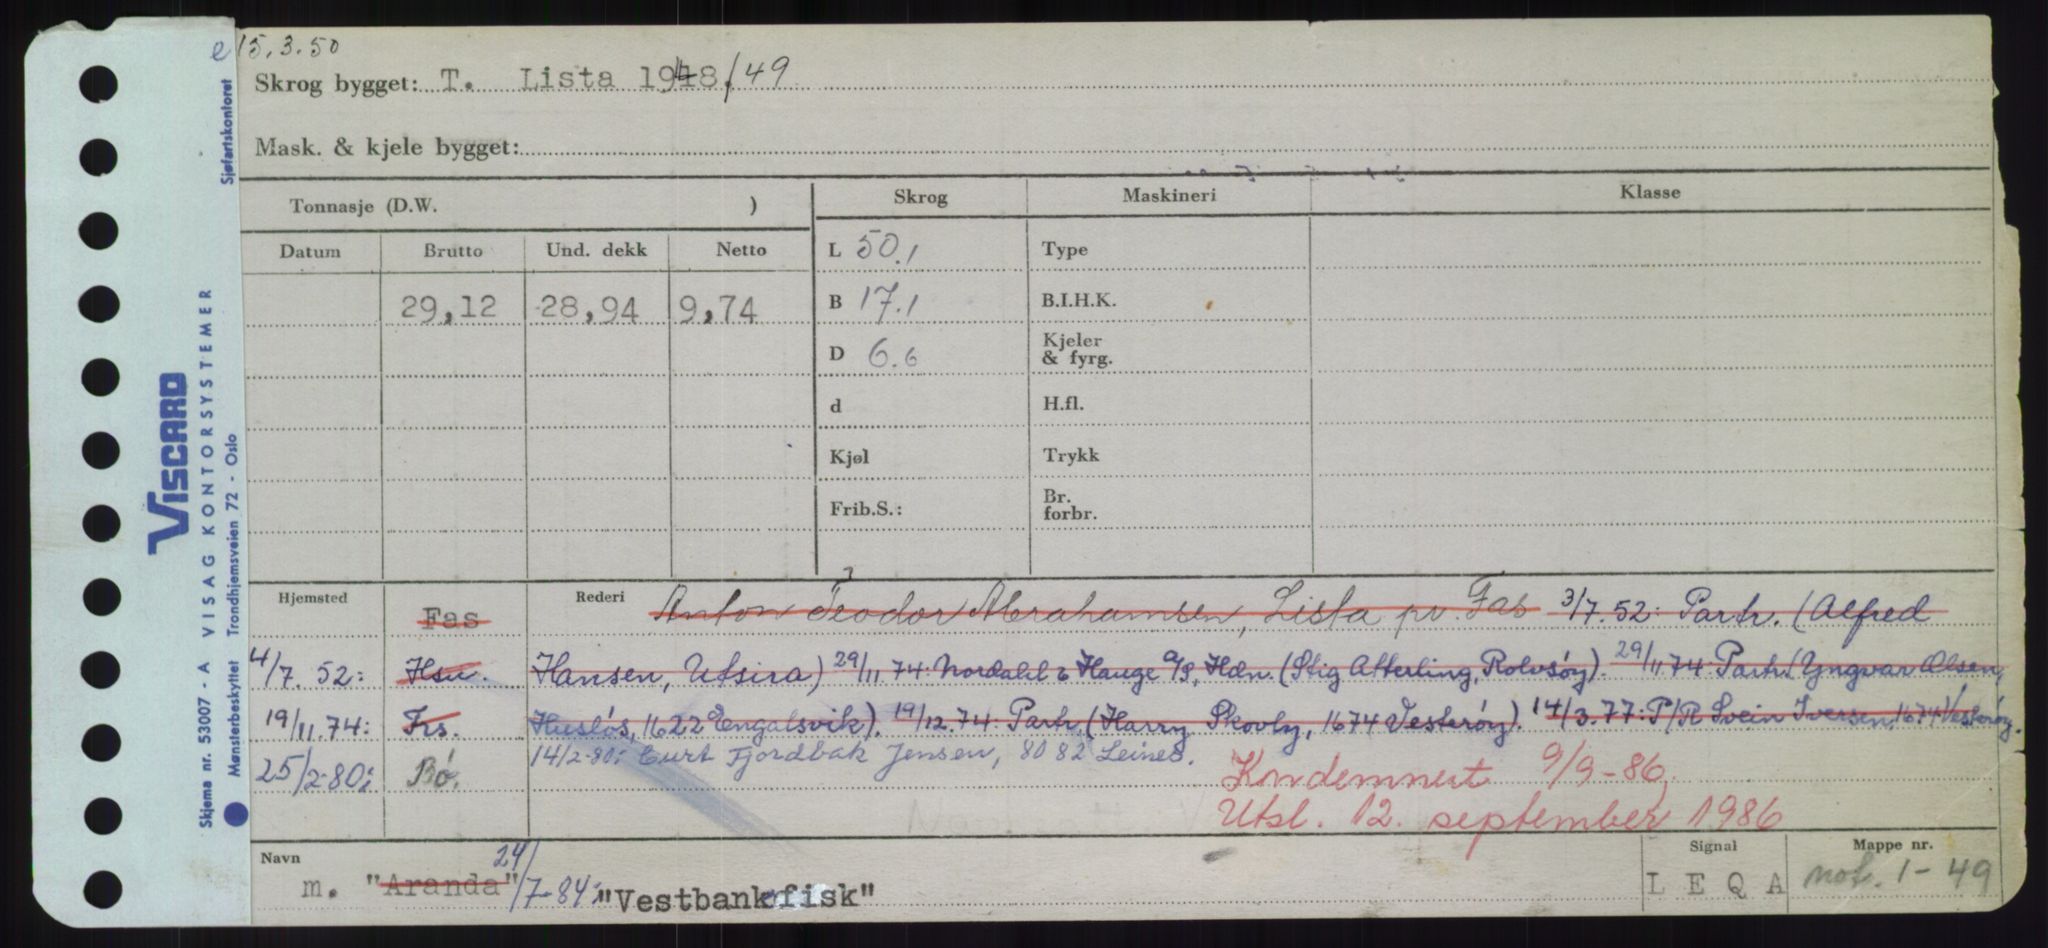 e 15.3.50
Skrog bygget: T. Lista 1948/49
Mask. & kjele bygget:
Tonnasje (D.W. ) Skrog Maskineri Klasse
Datum Brutto Und. dekk Netto L 50.1 Type
29,12 28,94 9,74 B 17.1 B.I.H.K.
D 6.6 Kjeler & fyrg.
d H.fl.
Kjøl Trykk
Frib.S.: Br. forbr.
Hjemsted Fas Rederi Anton Teodor Abrahamsen, Lista pr. Fas 3/7.52: Partr. (Alfred
4/7. 52: Hsu. Hansen, Utsira) 29/11 74: Nordahl & Hauge A/S, Hdn. (Stig Atterling, Rolvsøy). 29/11 74: Partr. (Yngvar Olsen,
19/11.74: Frs. Husløs, 1622 Engalsvik). 19/12.74: Partr. (Harry Skovly, 1674 Vesterøy). 14/3.77: P/R Svein Iversen, 1674 Vesterøy.
25/2-80: Bø. 14/2-80: Curt Fjordbak Jensen, 8082 Leines. Kondemnert 9/9-86
Utsl. 12. september 1986
Navn Signal Mappe nr.
m. "Aranda" 24/7-84: "Vestbankfisk" L E Q A not. 1-49
VISCARD
A VISAG KONTORSYSTEMER
Skjema nr. 53007 -
Mønsterbeskyttet Trondhjemsveien 72 - Oslo
Sjøfartskontoret